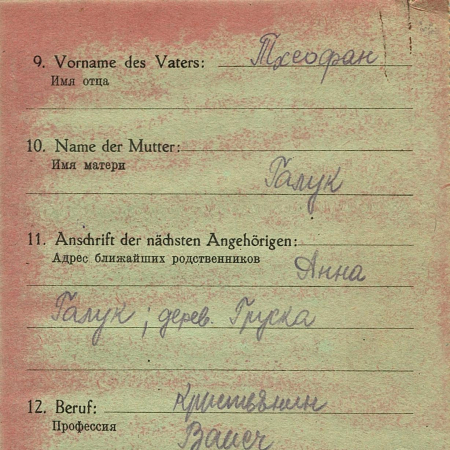 9. Vorname des Vaters: Тхеофан
Имя отца
10. Name der Mutter:
Имя матери
Галук
11. Anschrift der nächsten Angehörigen:
Адрес ближайших родственников Анна
Галук; дерев. Груска
12. Beruf: Кристьянин
Профессия